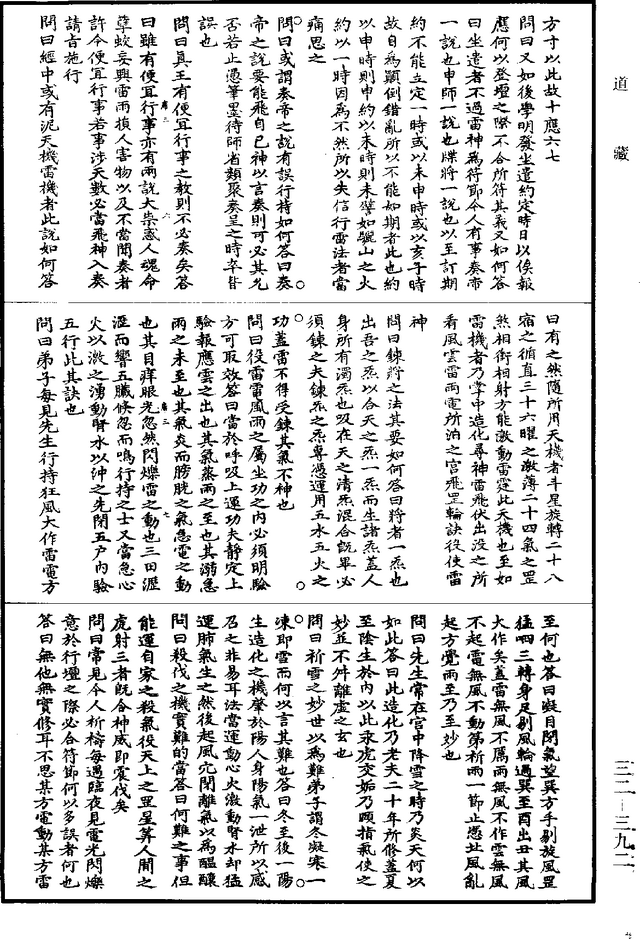 道藏
方寸以此故十應六七
問曰又如後學明發坐遣約定時日以俟報
應何以登壇之際不合所符其義又如何答
曰坐遣者不過雷神為符節令人有事奏帝
一說也申師一說也牒將一說也以至訂期
約不能立定一時或以未申時或以亥子時
故自為顛倒錯亂所以不能如期者此也約
以申時則申約以未時則未譬如驪山之火
約以一時因為不然所以失信行雷法者當
痛思之
問曰或謂奏帝之說有誤行持如何答曰奏
帝之說要能飛自己神以言奏則可必其允
否若止憑筆墨待師省類聚奏呈之時卒皆
誤也
問曰真王有便宜行事之教則不必奏矣答
曰雖有便宜行事亦有兩說大祟惑人魂命
孽蛟妄興雷雨損人害物以及不當聞奏者
許令便宜行事若事涉天數必當飛神入奏
請旨施行
問曰經中或有泥天機雷機者此說如何答
曰有之然隨所用天機者斗星旋轉二十八
宿之循直三十六曜之激薄二十四氣之罡
煞相衝相射方能激動雷霆此天機也至如
雷機者乃掌中造化尋神雷飛伏出沒之所
看風雲雷雨電所泊之宮飛罡輪訣役使雷
神
問曰鍊將之法其要如何答曰將者一炁也
出吾之炁以合天之炁一炁而生諸炁蓋人
身所有濁炁也吸在天之清炁混合既畢必
須鍊之夫鍊炁之炁專憑運用五水五火之
功蓋雷不得受鍊其氣不神也
問曰役雷雷風雨之屬坐功之內必須明驗
方可取效答曰當於呼吸上運功夫靜定上
驗報應雲之出也其氣蒸雨之至也其溺急
雨之未至也其氣炎而膀胱之氣急電之動
也其目痒眼光忽然閃爍雷之動也三田瀝
瀝而響五臟倏忽而鳴行持之士又當急心
火以激之湧動腎水以沖之先閉五戶內驗
五行此其訣也
問曰弟子每見先生行持狂風大作雷電方
至何也答曰凝目閉氣望巽方手剔旋風罡
猛喝三轉身足剔風輪過巽至酉出丑其風
大作矣蓋雷無風不厲雨無風不作雲無風
不起電無風不動第祈雨一節止憑怯風亂
起方覺雨至乃至妙也
問曰先生常在宮中降雪之時乃炎天何以
如此答曰此造化乃老夫二十年所修蓋夏
至陰生於內以此汞虎交姤乃頤指氣使之
妙並不舛離虛之玄也
問曰祈雪之妙世以為難弟子謂冬凝寒一
凍即雪而何以言其難也答曰冬至後一陽
生造化之機肇於陽人身陽氣一泄所以感
召之非易耳法當運動心火激動腎水却猛
運肺氣生之然後起風穴閉離氣以為醞釀
問曰殺伐之機實難的當答曰何難之事但
能運自家之殺氣役天上之罡星筭人間之
虎射三者既合神威即震伐矣
問曰常見今人祈禱每遇臨夜見電光閃爍
意於行壇之際必合符節何以多誤者何也
答曰無他無實修耳不思某方電動某方雷
三二—三九二